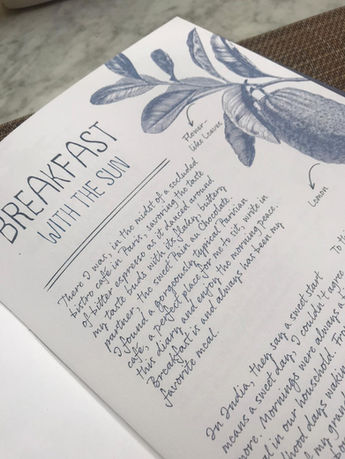 BREAKFAST
WITH THE SUN
Flower-
like Leaves
Lemon
There I was, in the midst of a secluded
bistro café in Paris, savoring the taste
of bitter espresso as it danced around
my taste buds with its flaky, buttery
partner, the sweet Pain au Chocolate.
I found a gorgeously typical Parisian
café, a perfect place for me to sit, write in
this diary and enjoy the morning peace.
Breakfast is and always has been my
favorite meal.
To th
In India, they say a sweet start
means a sweet day, I couldn't agree
more. Mornings were always a
in our household. Fr
hood days waking
my gran